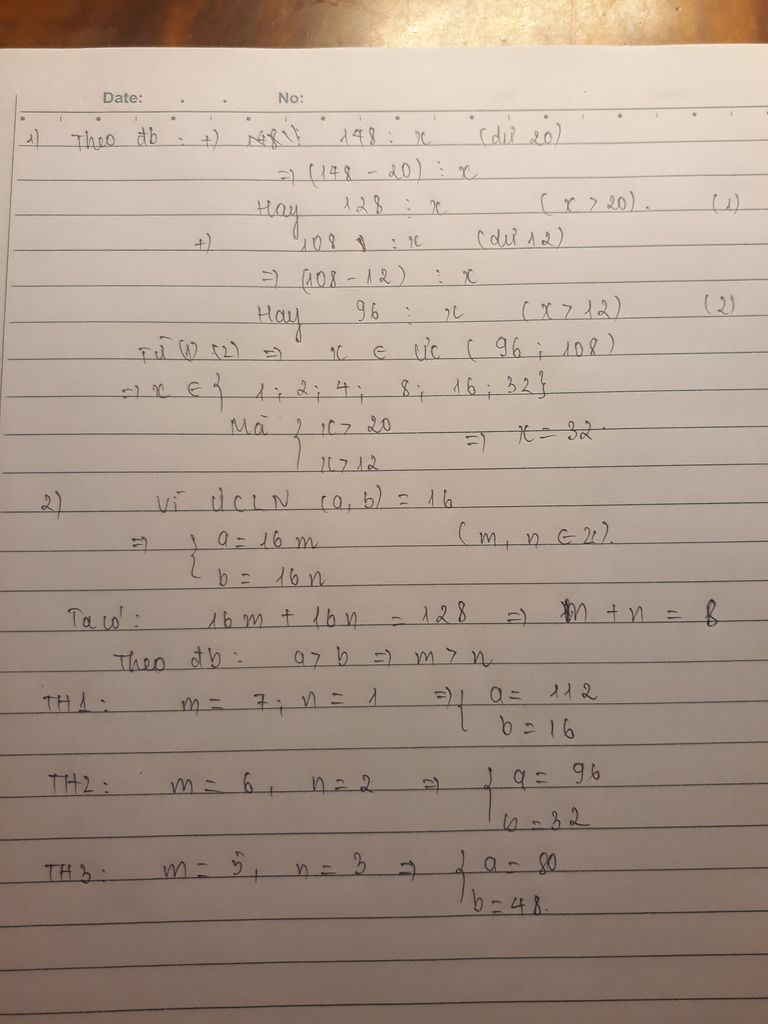 Date: No:
1) Theo đb : +) 148 : x (dư 20)
=> (148 - 20) ⋮ x
Hay 128 ⋮ x (x > 20). (1)
+) 108 : x (dư 12)
=> (108 - 12) ⋮ x
Hay 96 : x (x > 12) (2)
Từ (1) (2) => x ∈ ƯC (96 ; 108)
=> x ∈ { 1 ; 2 ; 4 ; 8 ; 16 ; 32 }
Mà { x > 20
x > 12 => x = 32.
2) Vì ƯCLN (a, b) = 16
=> { a = 16 m (m, n ∈
b = 16 n
Ta có : 16 m + 16 n = 128 => m + n = 8
Theo đb : a > b => m > n
TH1 : m = 7 ; n = 1 => { a = 112
b = 16
TH2 : m = 6, n = 2 => { a = 96
b = 32
TH3 : m = 5, n = 3 => { a = 80
b = 48.